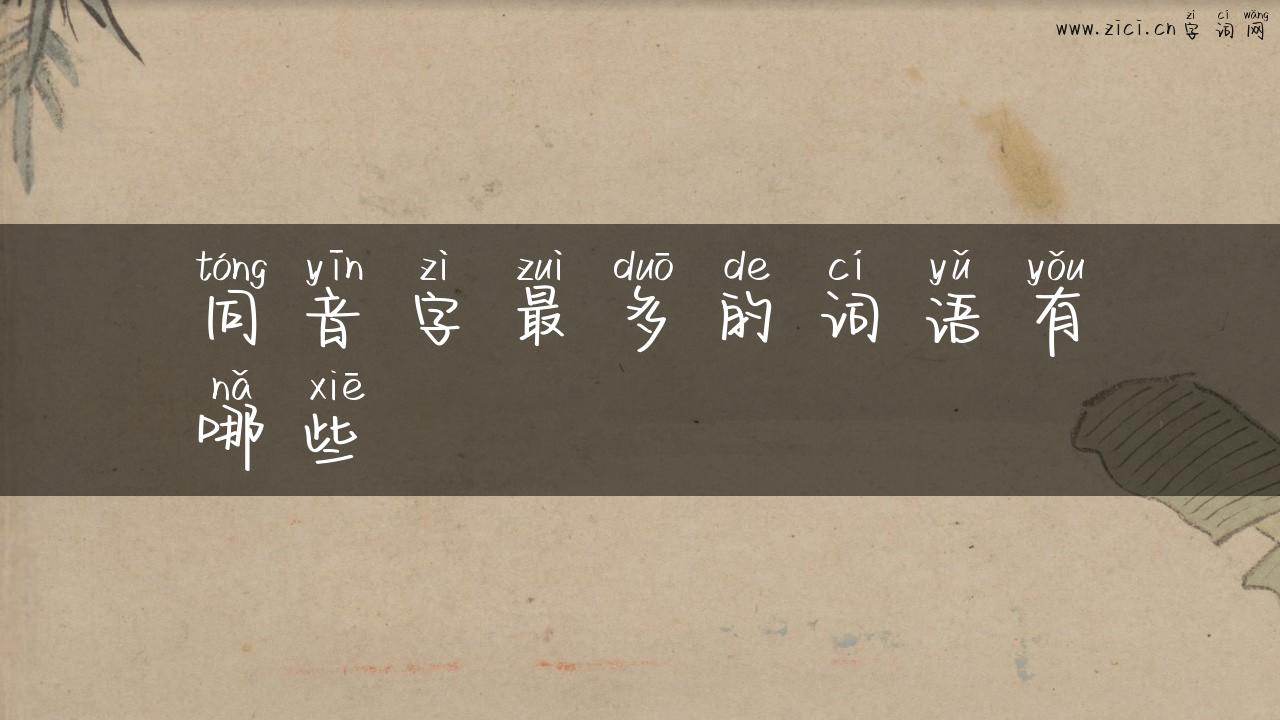 zì cí wǎng
www.zici.cn 字词网
tóng yīn zì zuì duō de cí yǔ yǒu
同音字最多的词语有
nǎ xiē
哪些